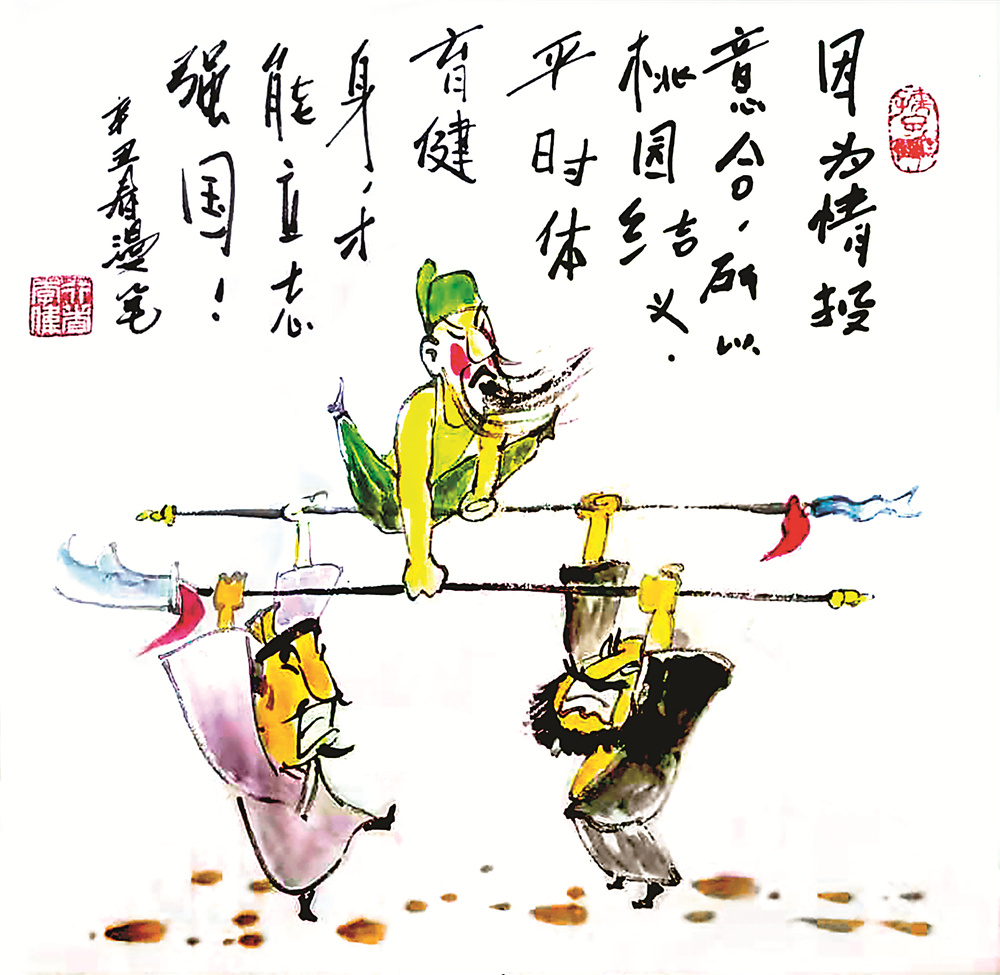 因为情投
意合，所以
桃园结义．
平时体
育健
身，才
能立志
强国！
辛丑春漫笔